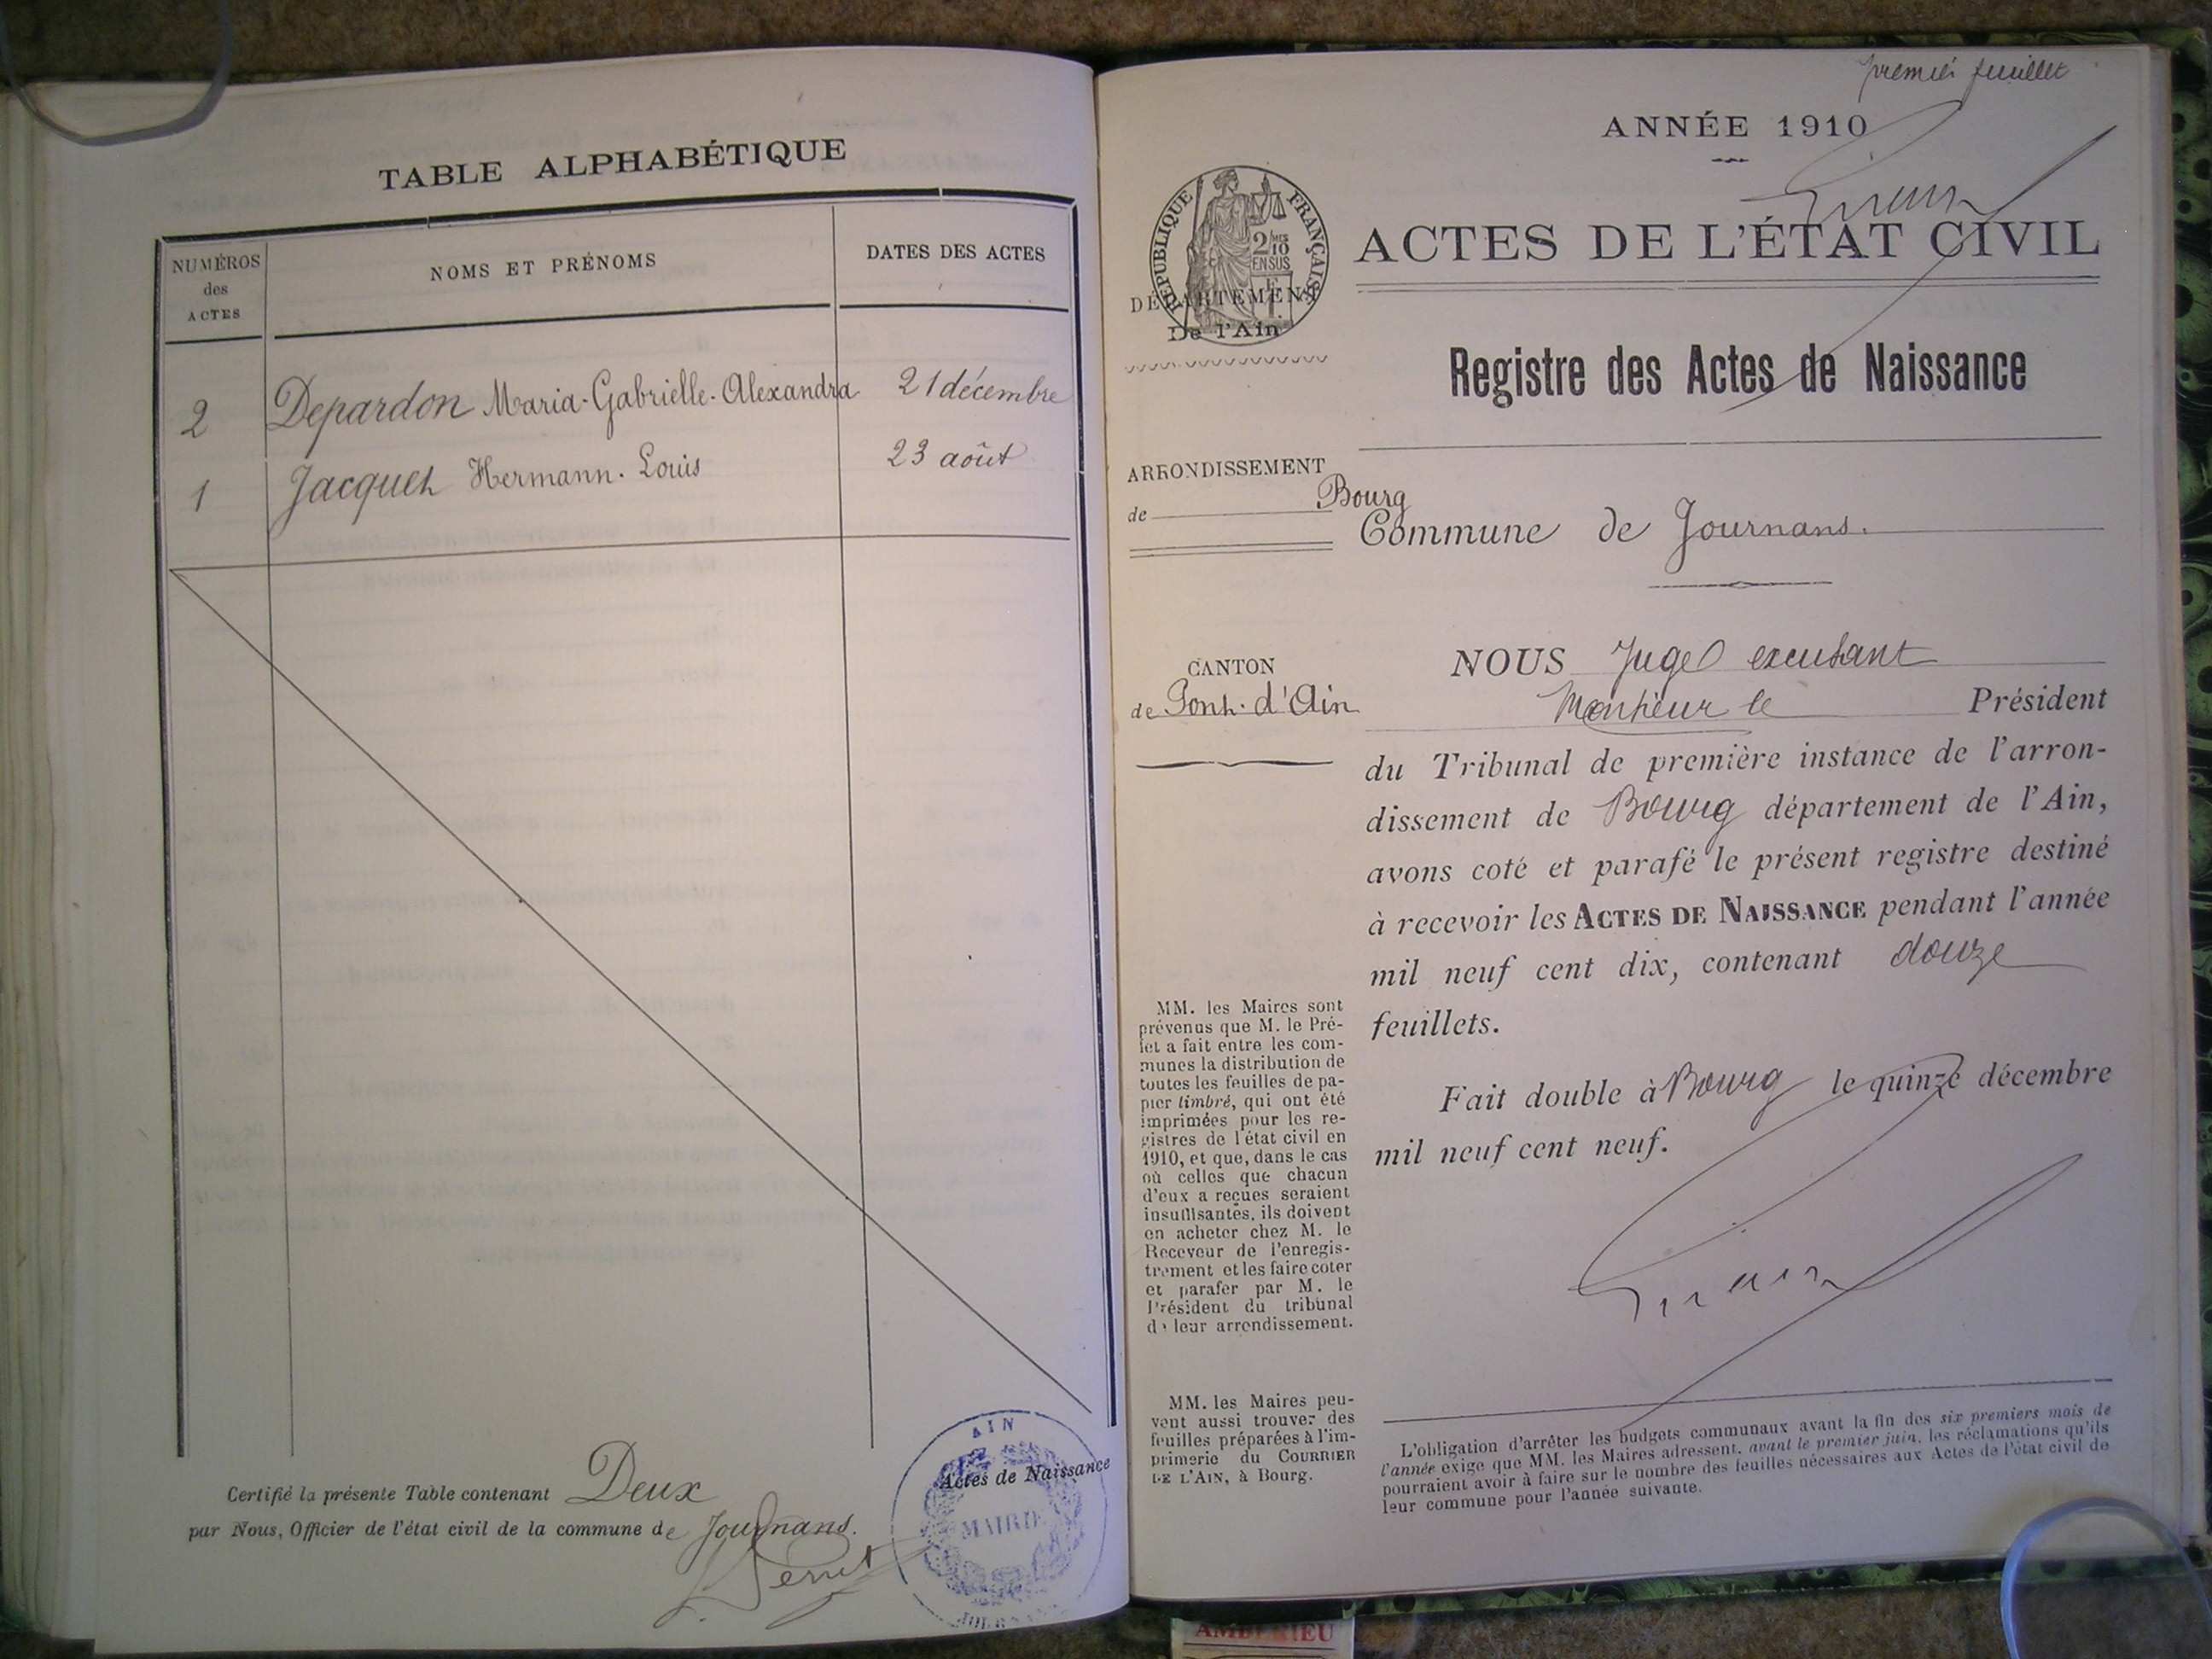 TABLE ALPHABÉTIQUE
NUMÉROS
des
ACTES
NOMS ET PRÉNOMS
DATES DES ACTES
2 Depardon Maria-Gabrielle-Alexandra 21 décembre
1 Jacquet Hermann-Louis 23 août
Certifié la présente Table contenant Deux
Actes de Naissance
par Nous, Officier de l'état civil de la commune de Journans.
AIN
MAIRIE
premier feuillet
ANNÉE 1910
RÉPUBLIQUE FRANÇAISE
2/10
EN SUS
ACTES DE L'ÉTAT CIVIL
DÉPARTEMENT
De l'Ain
Registre des Actes de Naissance
ARRONDISSEMENT
de Bourg
Commune de Journans.
CANTON
de Pont-d'Ain
NOUS Juge excusant
Monsieur le Président
du Tribunal de première instance de l'arron-
dissement de Bourg département de l'Ain,
avons coté et parafé le présent registre destiné
à recevoir les ACTES DE NAISSANCE pendant l'année
mil neuf cent dix, contenant douze
feuillets.
Fait double à Bourg le quinze décembre
mil neuf cent neuf.
MM. les Maires sont
prévenus que M. le Pré-
fet a fait entre les com-
munes la distribution de
toutes les feuilles de pa-
pier timbré, qui ont été
imprimées pour les re-
gistres de l'état civil en
1910, et que, dans le cas
où celles que chacun
d'eux a reçues seraient
insuffisantes, ils doivent
en acheter chez M. le
Receveur de l'enregis-
trement et les faire coter
et parafer par M. le
Président du tribunal
de leur arrondissement.
MM. les Maires peu-
vent aussi trouver des
feuilles préparées à l'im-
primerie du COURRIER
DE L'AIN, à Bourg.
L'obligation d'arrêter les budgets communaux avant la fin des six premiers mois de
l'année exige que MM. les Maires adressent, avant le premier juin, les réclamations qu'ils
pourraient avoir à faire sur le nombre des feuilles nécessaires aux Actes de l'état civil de
leur commune pour l'année suivante.